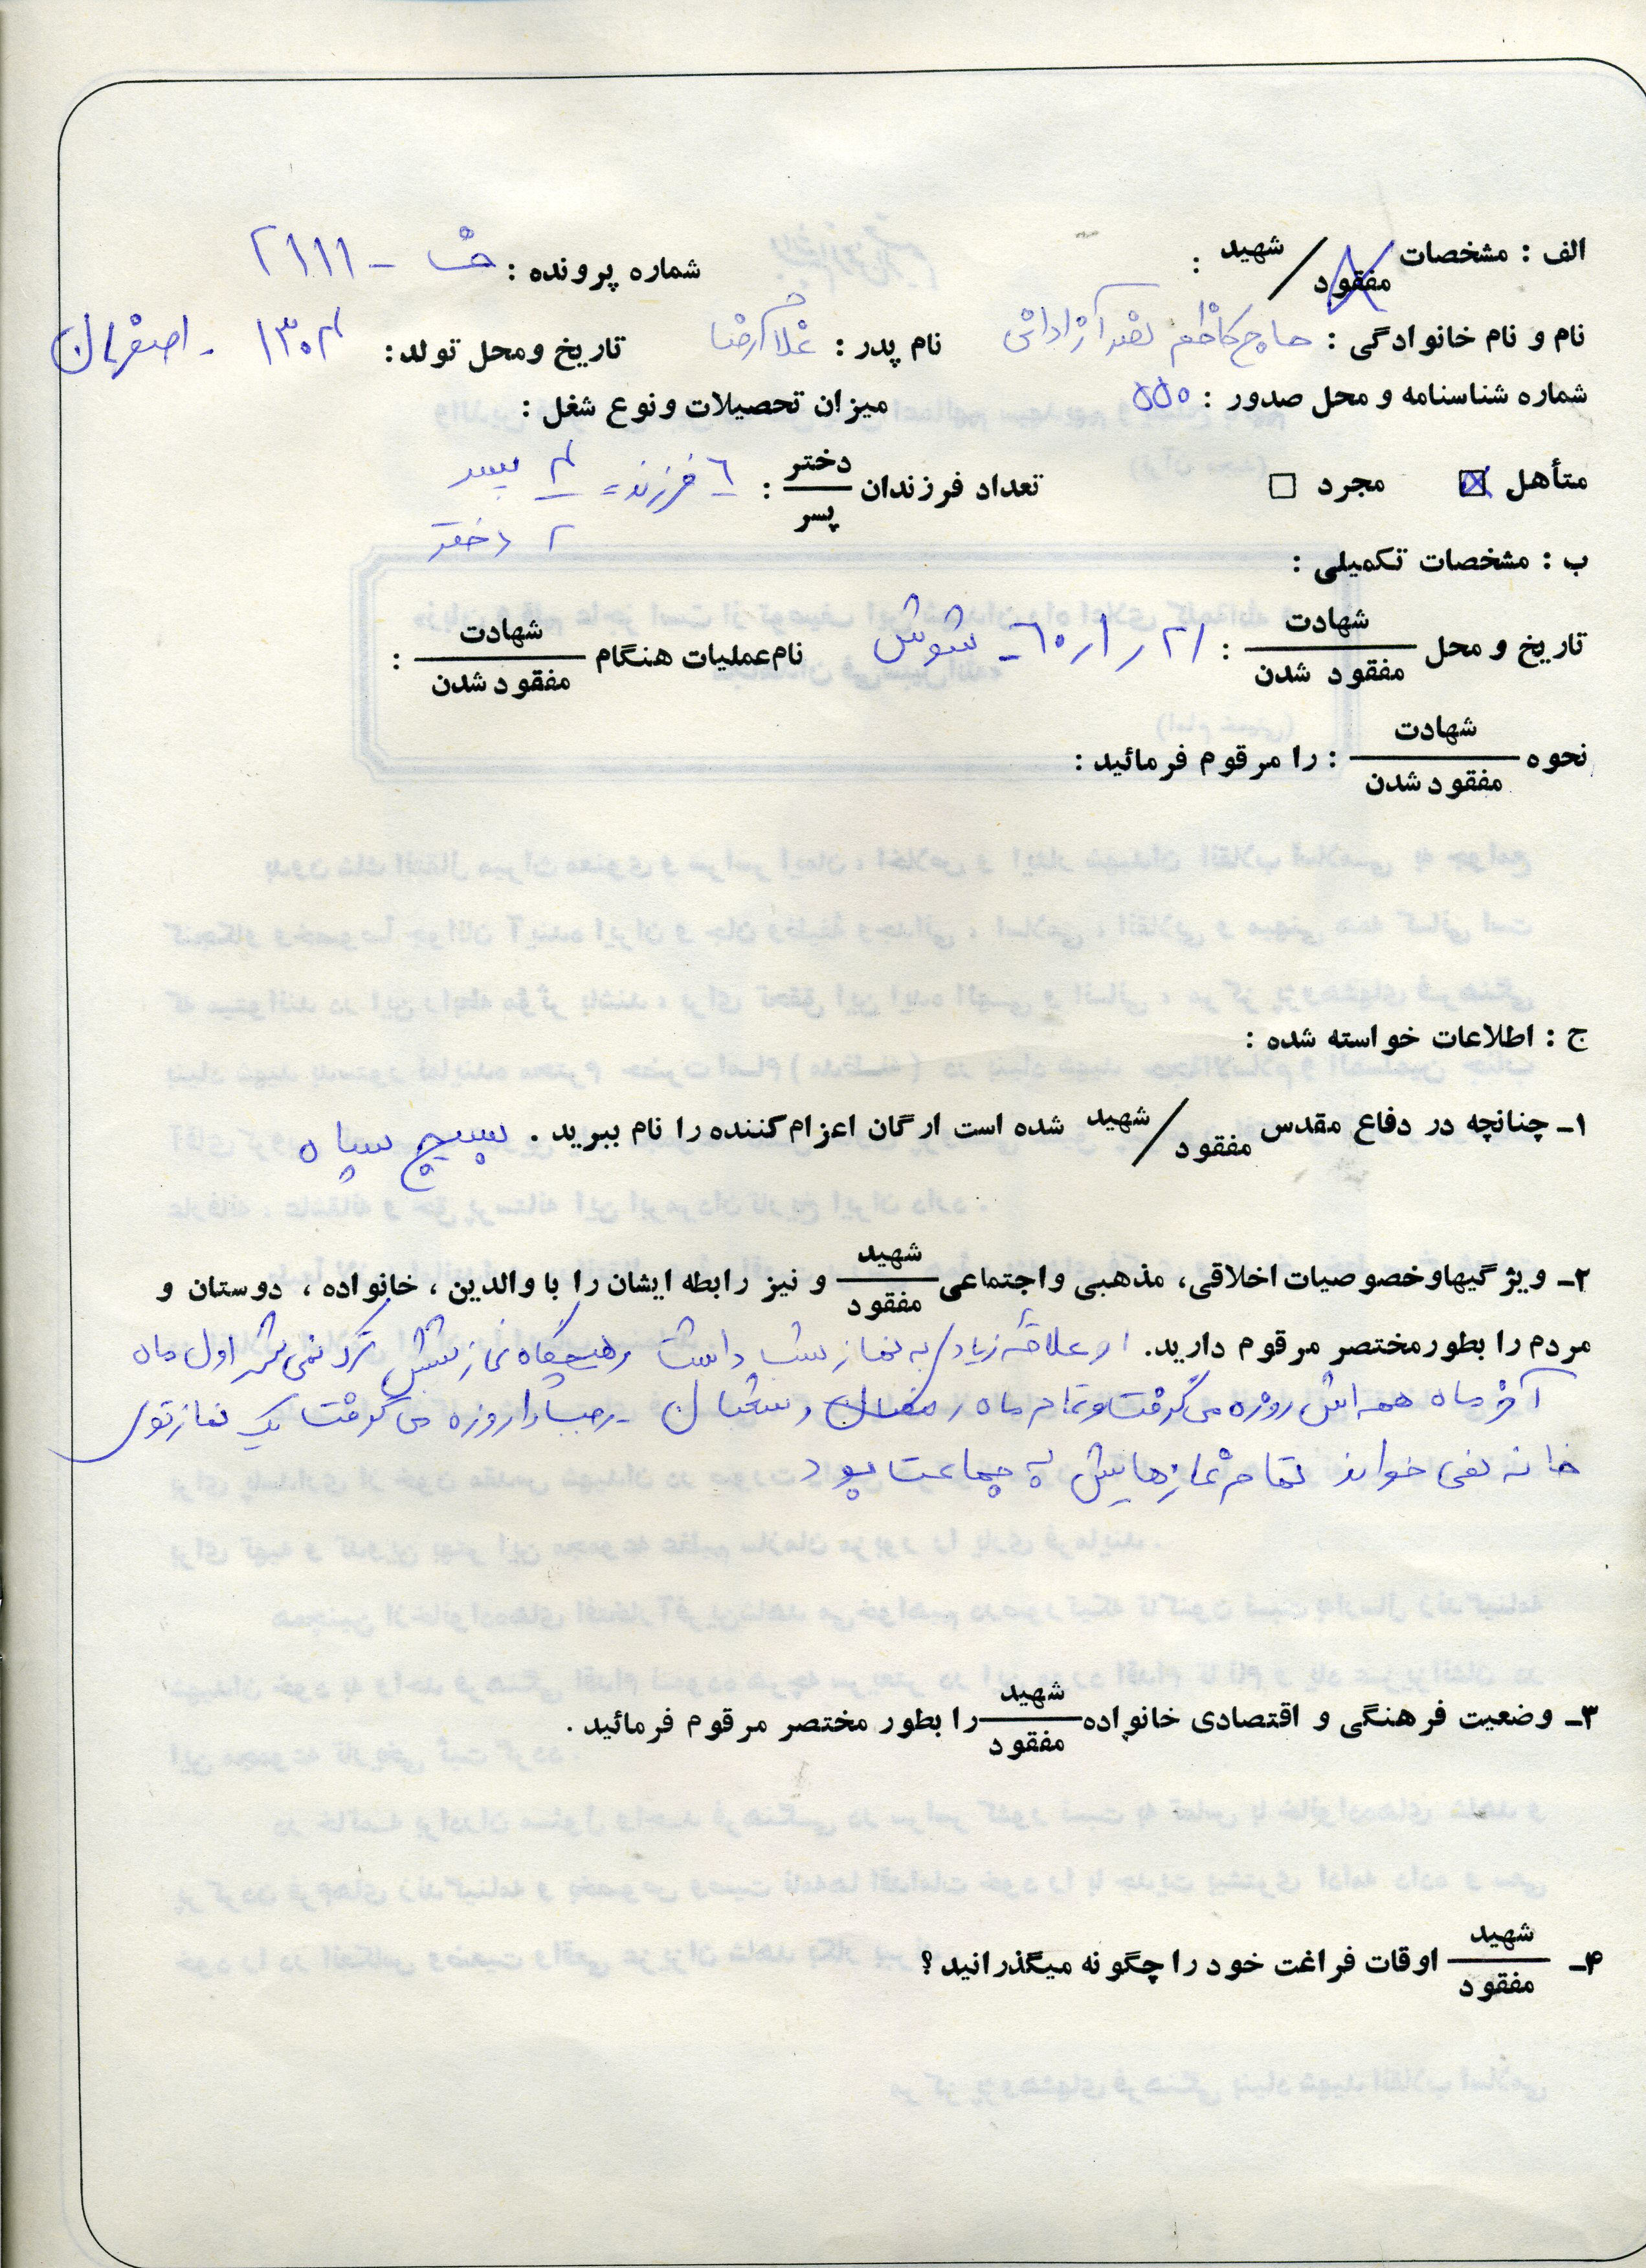 الف : مشخصات شهید / مفقود :
شماره پرونده : خ - ۲۱۱۱
نام و نام خانوادگی : حاج کاظم نصرآزادانی نام پدر : غلامرضا تاریخ ومحل تولد: ۱۳۰۴ - اصفهان
شماره شناسنامه و محل صدور : ۵۵۰ میزان تحصیلات ونوع شغل :
متأهل ☒ مجرد □ تعداد فرزندان دختر / پسر : ۶ فرزند = ۴ پسر
۲ دختر
ب : مشخصات تکمیلی :
تاریخ و محل شهادت / مفقود شدن : ۲۱ ر ۱ ر ۶۰ - شوش نام‌عملیات هنگام شهادت / مفقود شدن :
نحوه شهادت / مفقود شدن : را مرقوم فرمائید :
ج : اطلاعات خواسته شده :
۱- چنانچه در دفاع مقدس شهید / مفقود شده است ارگان اعزام‌کننده را نام ببرید . بسیج سپاه
۲- ویژگیهاوخصوصیات اخلاقی، مذهبی واجتماعی شهید / مفقود و نیز رابطه ایشان را با والدین ، خانواده ، دوستان و
مردم را بطورمختصر مرقوم دارید. او علاقه زیاد به نماز شب داشت و هیچگاه نماز شبش ترک نمی شد اول ماه
آخر ماه همه اش روزه می گرفت و تمام ماه رمضان و شعبان - رجب را روزه می گرفت یک نماز توی
خانه نمی خواند تمام نمازهایش به جماعت بود
۳- وضعیت فرهنگی و اقتصادی خانواده شهید / مفقود را بطور مختصر مرقوم فرمائید .
۴- شهید / مفقود اوقات فراغت خود را چگونه میگذرانید ؟